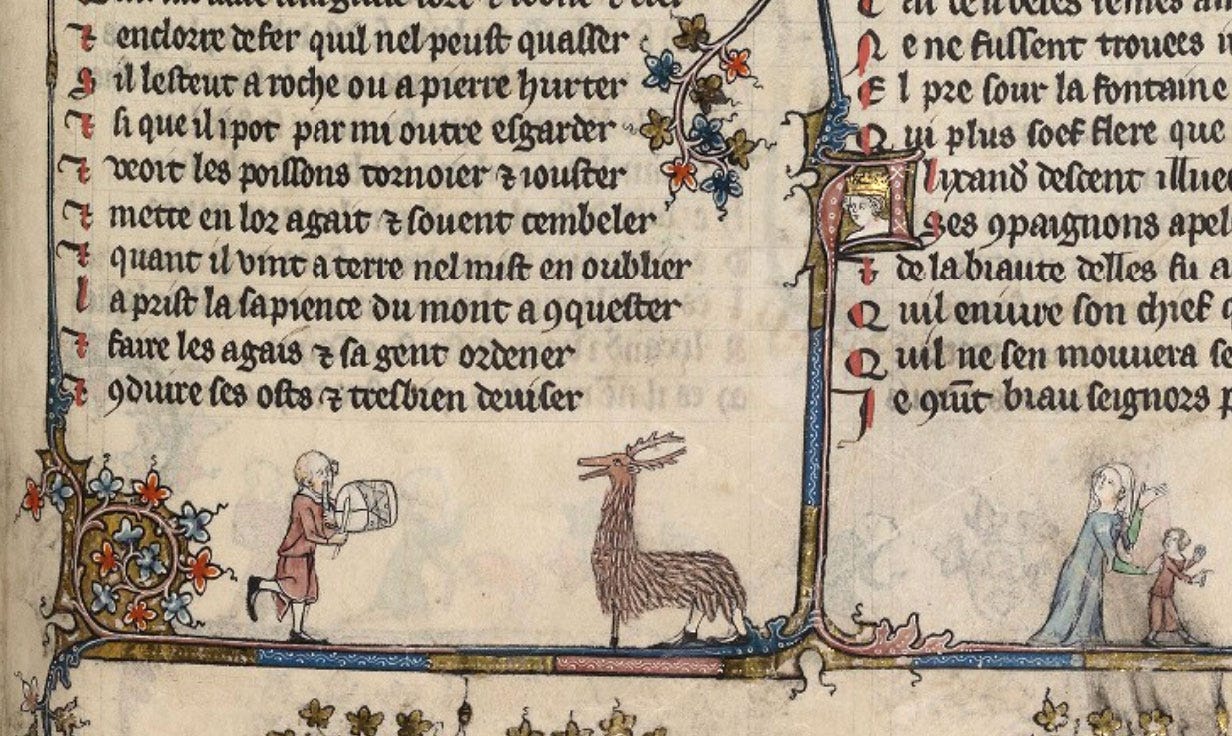 ⁊ enclorre de fer quil nel peust quasser
S il lesteut a roche ou a pierre hurter
⁊ si que il i pot par mi outre esgarder
⁊ veoit les poissons tornoier ⁊ iouster
⁊ mettre en lor agait ⁊ souent cembeler
⁊ quant il vint a terre nel mist en oublier
l a prist la sapience du mont a ꝯquester
⁊ faire les agais ⁊ sa gent ordener
⁊ ꝯduire ses osts ⁊ tresbien deuiser
N e ne fussent trouees
E l pre sour la fontaine
Q ui plus soef flere que
A lixandꝰ descent illuec
S es ꝯpaignons apel
⁊ de la biaute delles fu a
Q uil eniure son chief
Q uil ne sen mouuera
J e ꝯmāt biau seignors p